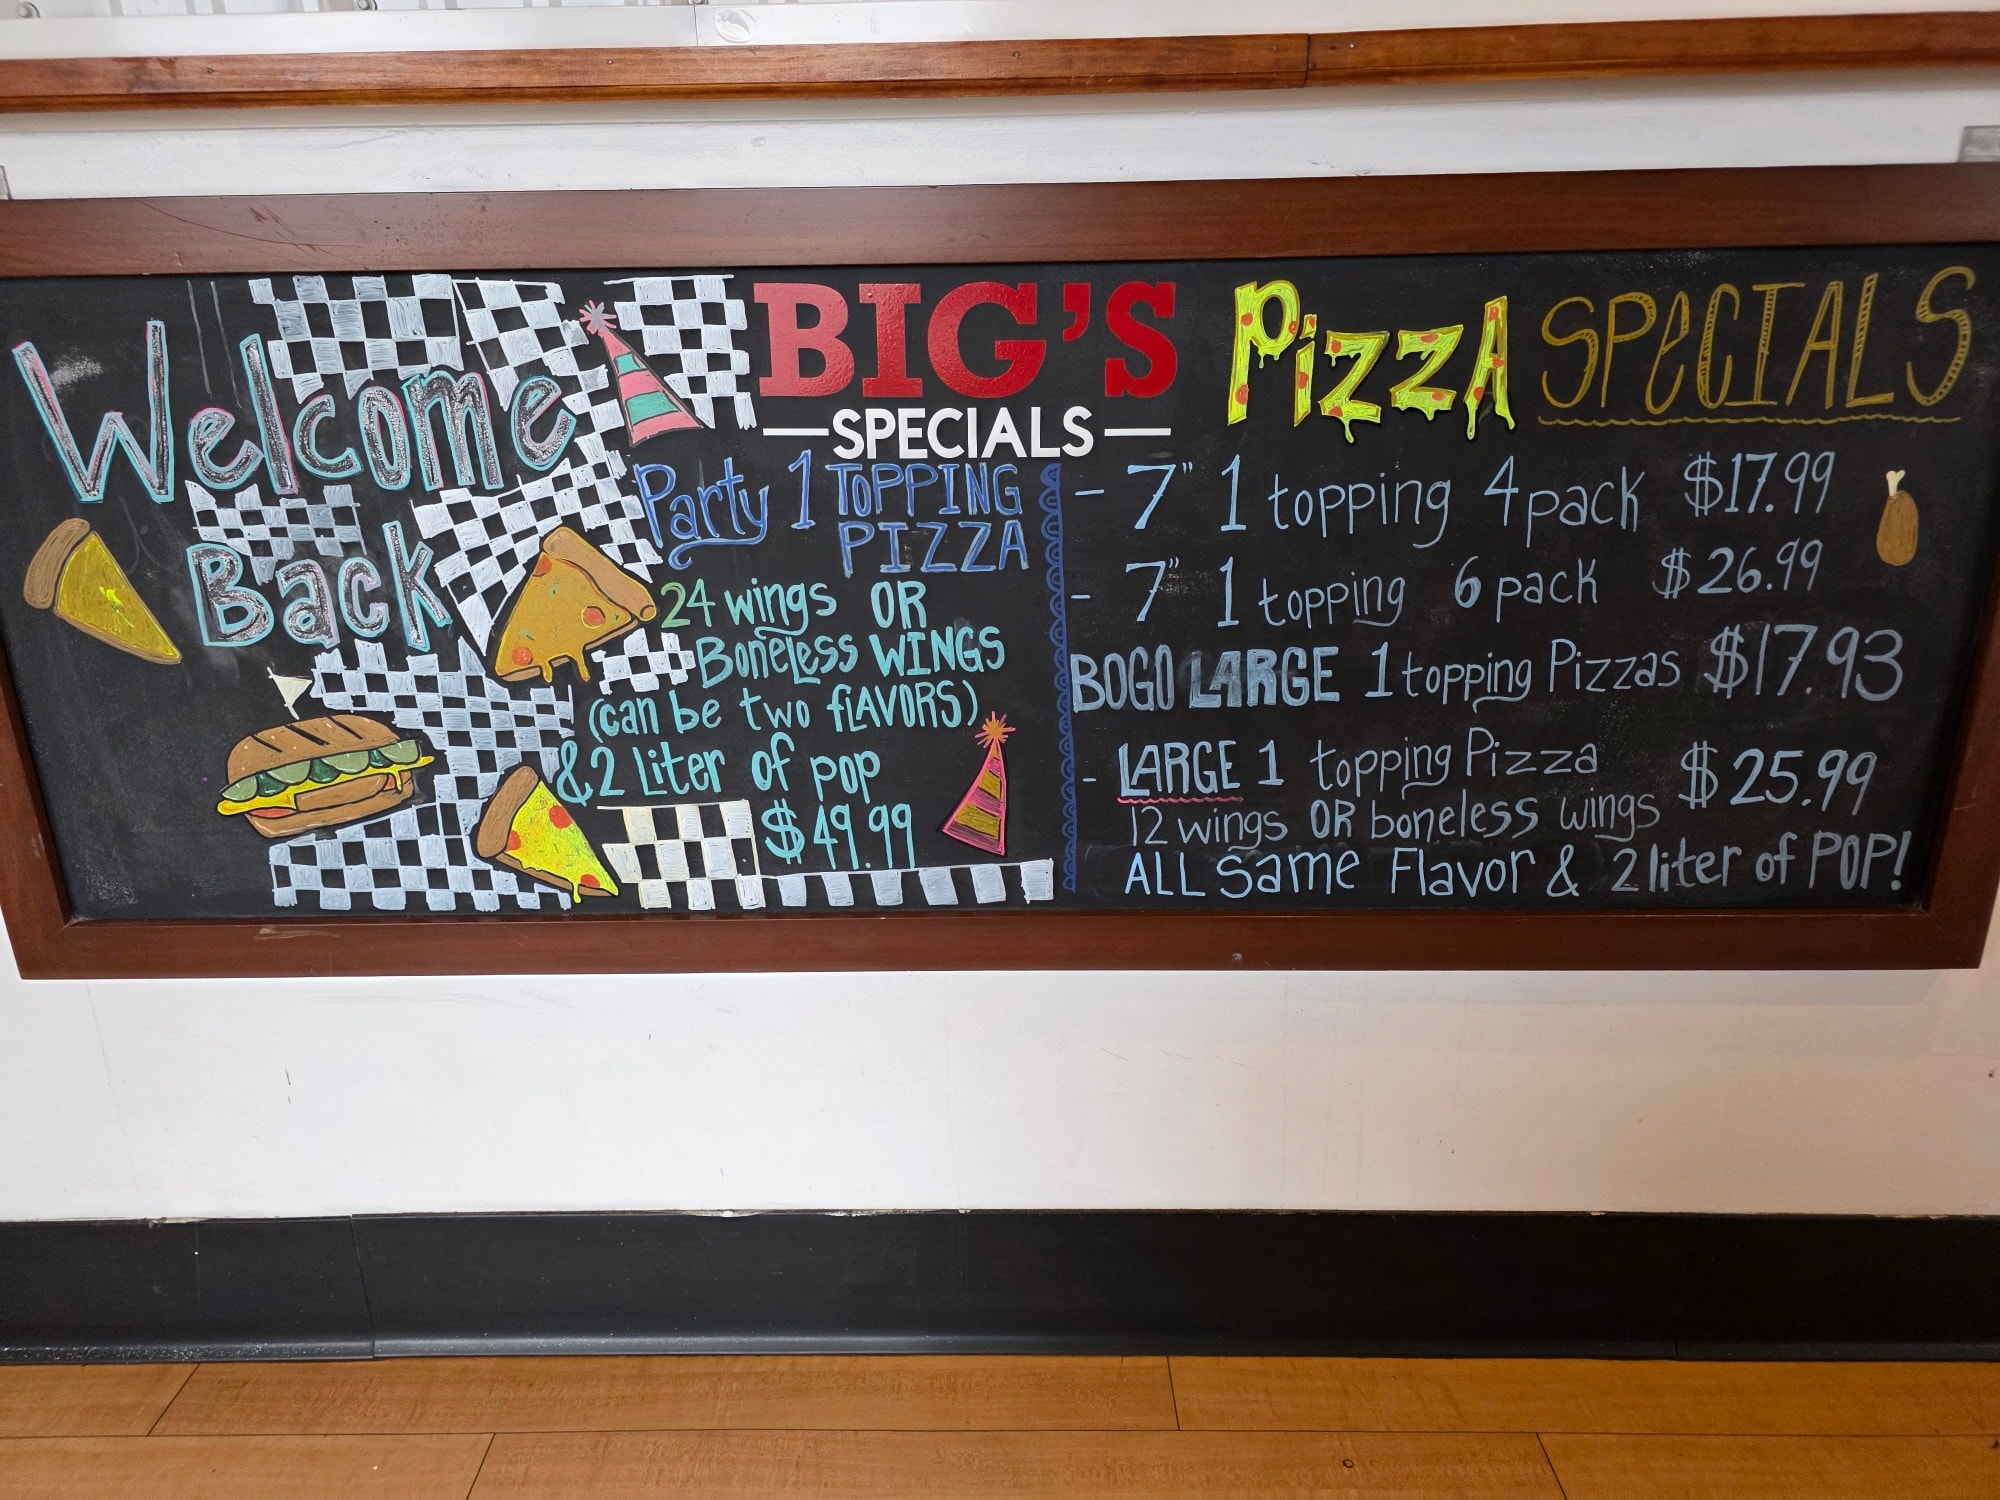 Welcome
Back
BIG'S
SPECIALS
Party 1 TOPPING
PIZZA
24 wings OR
Boneless WINGS
(can be two flAVORS)
& 2 Liter of pop
$49.99
Pizza SPeCIALS
- 7" 1 topping 4 pack $17.99
- 7" 1 topping 6 pack $26.99
BOGO LARGE 1 topping Pizzas $17.93
- LARGE 1 topping Pizza $25.99
12 wings OR boneless wings
ALL Same Flavor & 2 liter of POP!